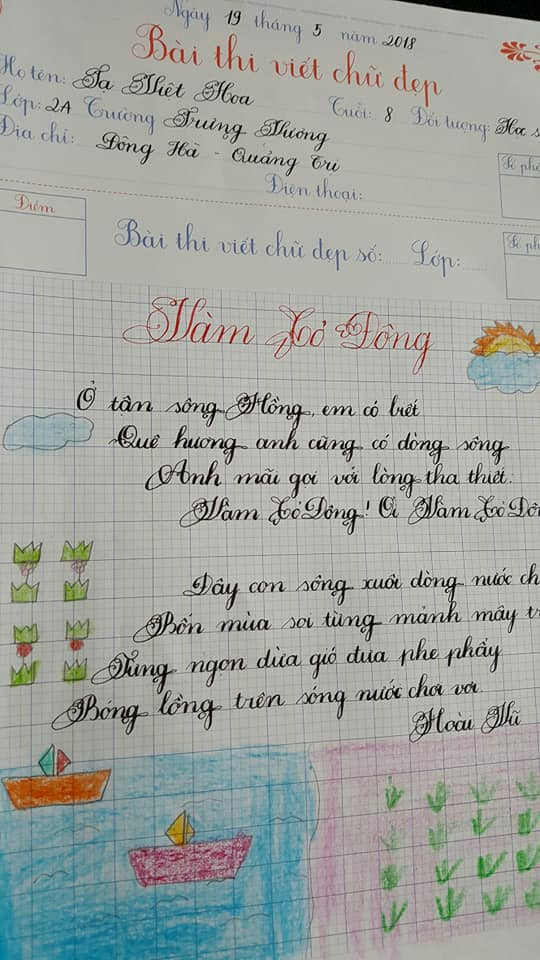 Ngày 19 tháng 5 năm 2018
Bài thi viết chữ đẹp
Họ tên: Tạ Nhệt Hoa
Tuổi: 8 Đối tượng: Học s
Lớp: 2A Trường Trưng Vương
Địa chỉ: Đông Hà - Quảng Trị
Điện thoại:
Số ph
Điểm
Bài thi viết chữ đẹp số: Lớp:
Số ph
Vàm Cỏ Đông
Ở tận sông Hồng, em có biết
Quê hương anh cũng có dòng sông
Anh mãi gọi với lòng tha thiết.
Vàm Cỏ Đông! Ơi Vàm Cỏ Đô
Đây con sông xuôi dòng nước ch
Bốn mùa soi từng mảnh mây t
Từng ngọn dừa gió đưa phe phẩy
Bóng lồng trên sóng nước chơi vơi
Hoài Vũ